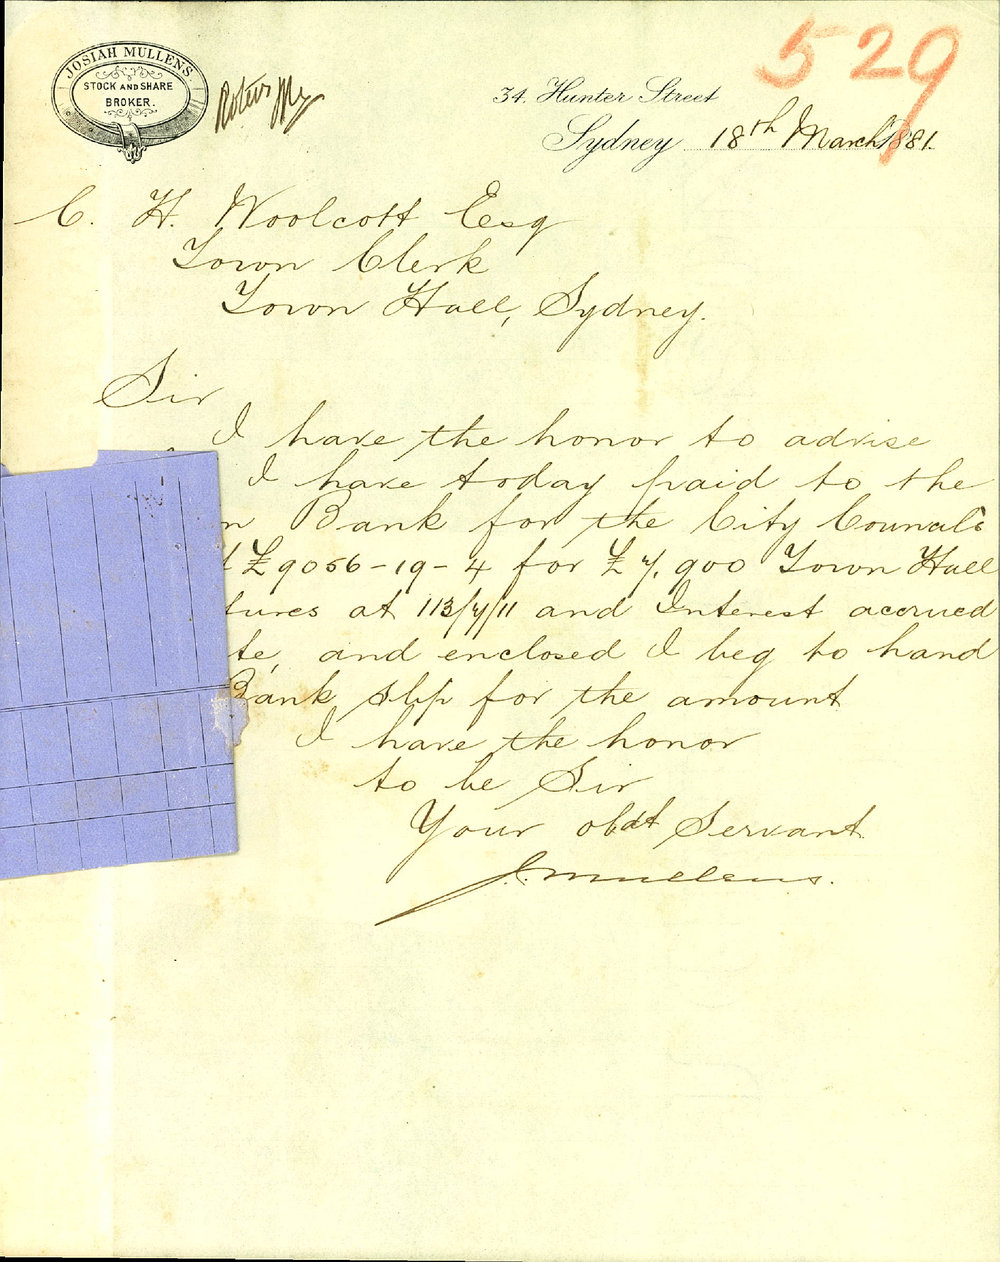 JOSIAH MULLENS.
STOCK AND SHARE
BROKER.
529
34. Hunter Street
Sydney 18th March 1881.
C. H. Woolcott Esq
Town Clerk
Town Hall, Sydney.
Sir
I have the honor to advise
I have today paid to the
n Bank for the City Council's
£9056-19-4 for £7,900 Town Hall
tures at 113/7/11 and Interest accrued
te, and enclosed I beg to hand
Bank slip for the amount
I have the honor
to be Sir
Your obdt Servant
J. Mullens.